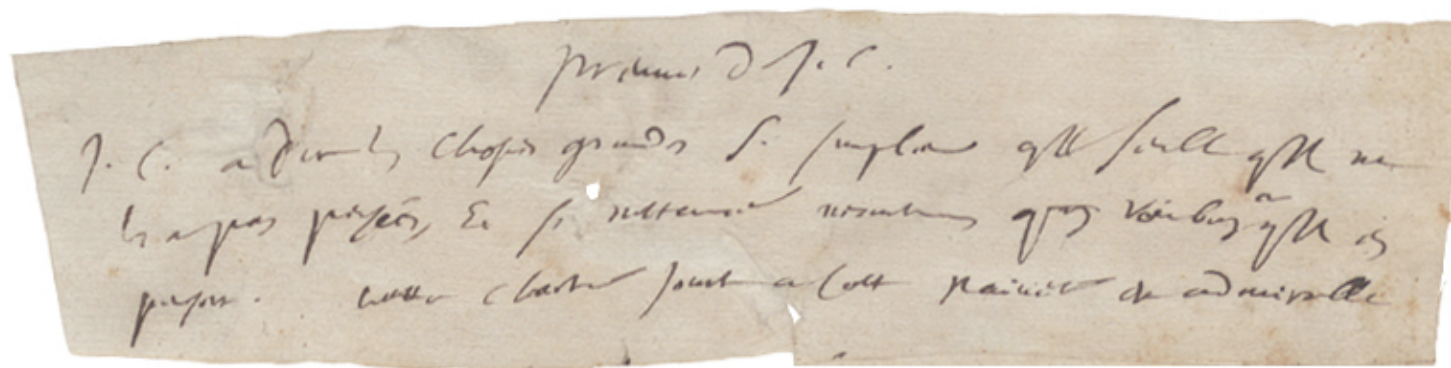 Preuves de J. C.
J. C. a dit les choses grandes si simplem^t qu'il semble qu'il ne
les a pas pensées, Et si nettement neantmoins qu'on voit bien ce qu'il en
pensoit. cette clarté jointe a cette naiveté est admirable